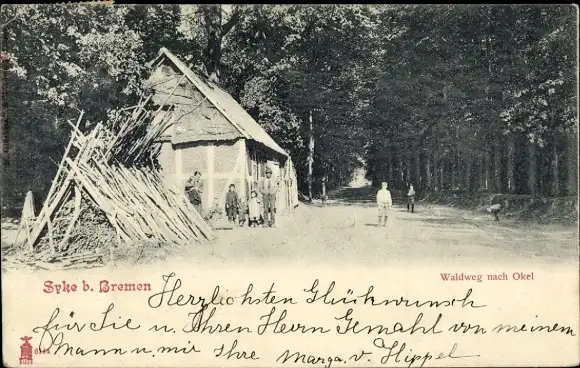 Syke b. Bremen
Waldweg nach Okel
Herzlichsten Glückwunsch
für Sie u. Ihren Herrn Gemahl von meinem
Mann u. mir, Ihre Marga. v. Hippel